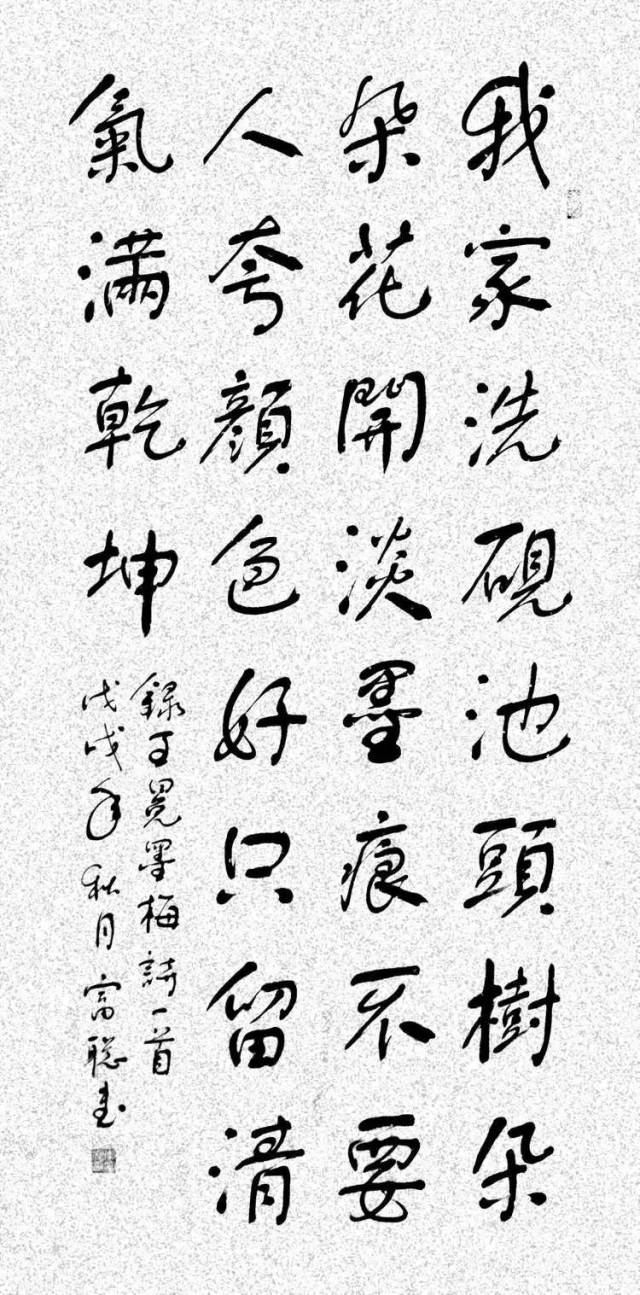 我家洗硯池頭樹朵
朵花開淡墨痕不要
人夸顏色好只留清
氣滿乾坤
錄王冕墨梅詩一首
戊戌年秋月富聰書